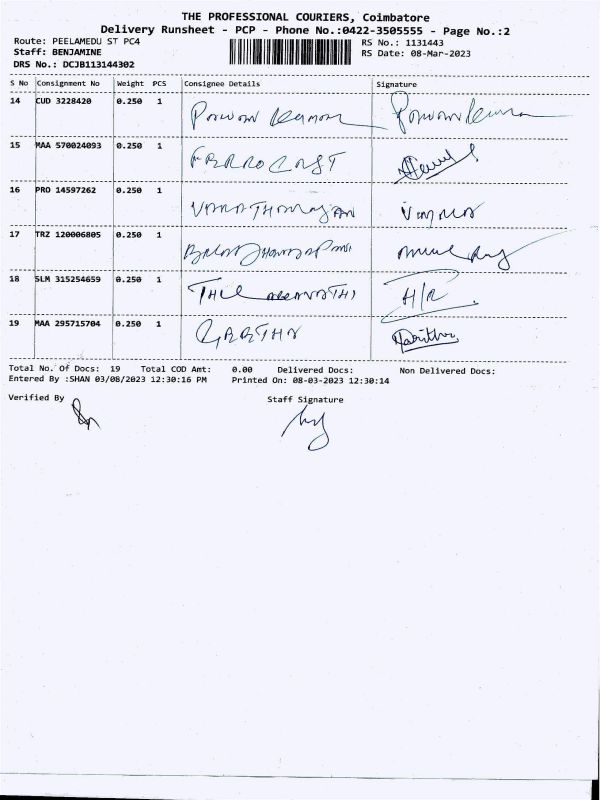 THE PROFESSIONAL COURIERS, Coimbatore
Delivery Runsheet - PCP - Phone No.:0422-3505555 - Page No.:2
Route: PEELAMEDU ST PC4
RS No.: 1131443
Staff: BENJAMINE
RS Date: 08-Mar-2023
DRS No.: DCJB113144302
S No Consignment No Weight PCS Consignee Details Signature
14 CUD 3228420 0.250 1
15 MAA 570024093 0.250 1 FERROCAST
16 PRO 14597262 0.250 1
17 TRZ 120006805 0.250 1
18 SLM 315254659 0.250 1 H/R
19 MAA 295715704 0.250 1
Total No. Of Docs: 19 Total COD Amt: 0.00 Delivered Docs: Non Delivered Docs:
Entered By :SHAN 03/08/2023 12:30:16 PM Printed On: 08-03-2023 12:30:14
Verified By Staff Signature